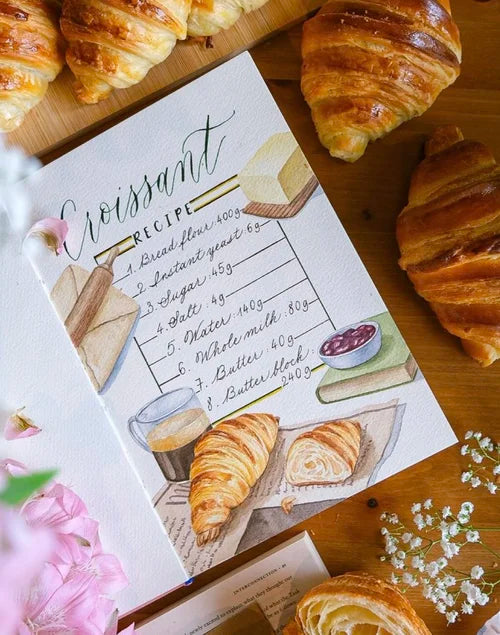 Croissant
RECIPE
1. Bread flour: 400g
2. Instant yeast: 6g
3. Sugar: 45g
4. Salt: 4g
5. Water: 140g
6. Whole milk: 80g
7. Butter: 40g
8. Butter block:
240g